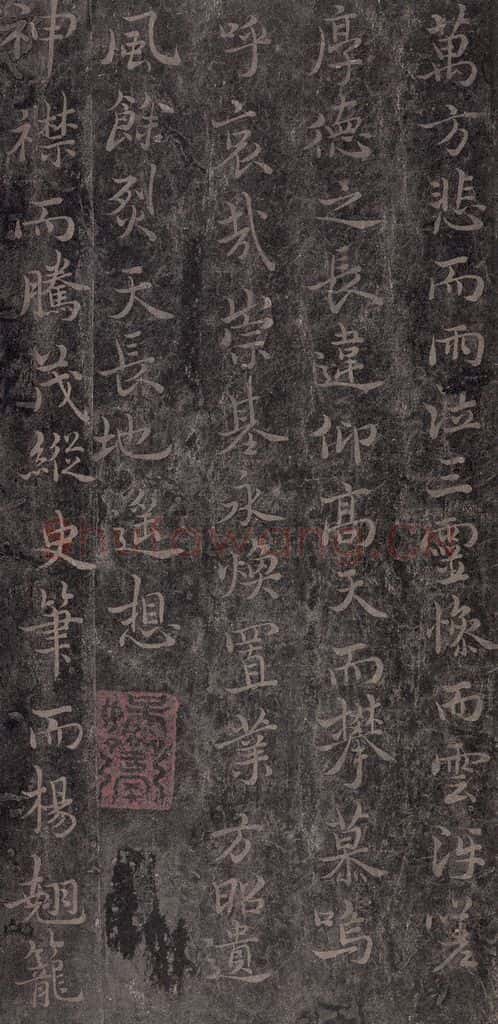 萬方悲而雨泣三靈慘而雲嗟
厚德之長違仰高天而攀慕嗚
呼哀哉崇基永煥置業方昭遺
風餘烈天長地遙想
神襟而騰茂縱史筆而楊翹籠
shufawang.cn